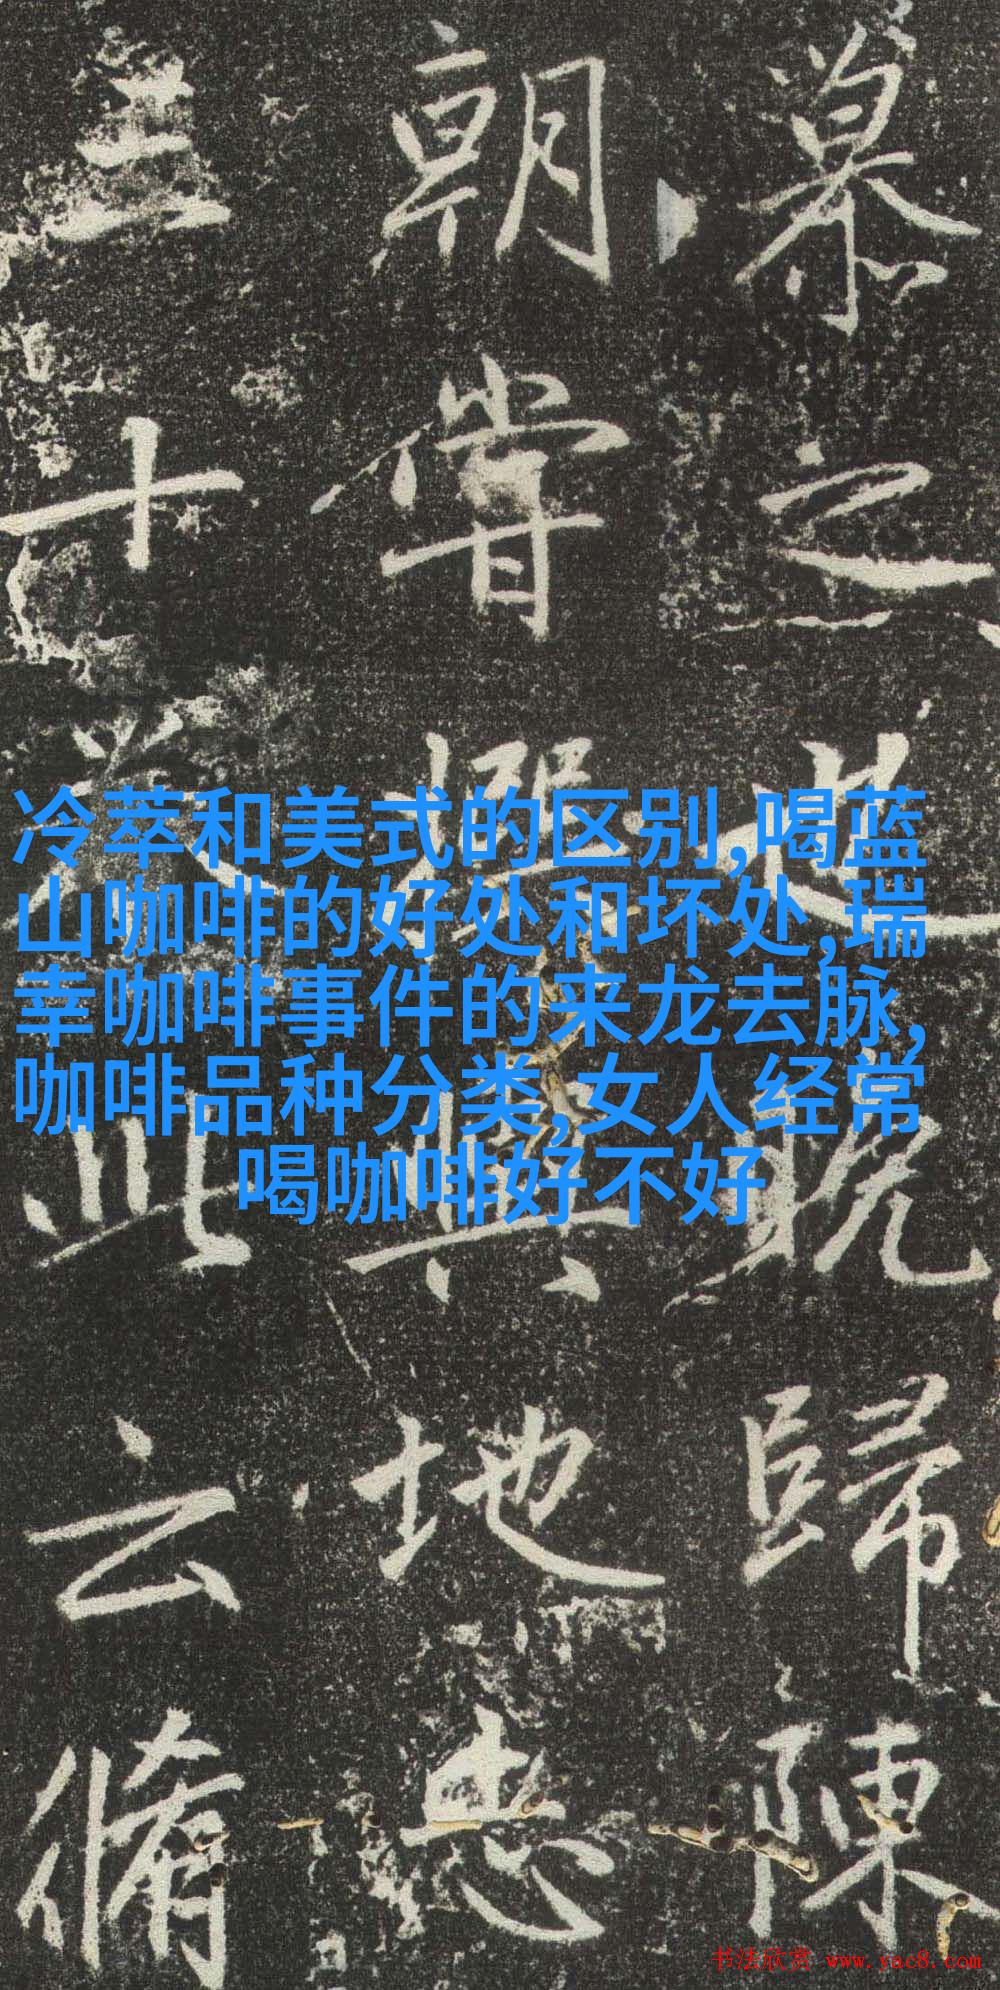 之歸陳
朝嘗與地忠
十此云脩
冷萃和美式的区别,喝蓝
山咖啡的好处和坏处,瑞
幸咖啡事件的来龙去脉,
咖啡品种分类,女人经常
喝咖啡好不好
书法欣赏 www.yac8.com